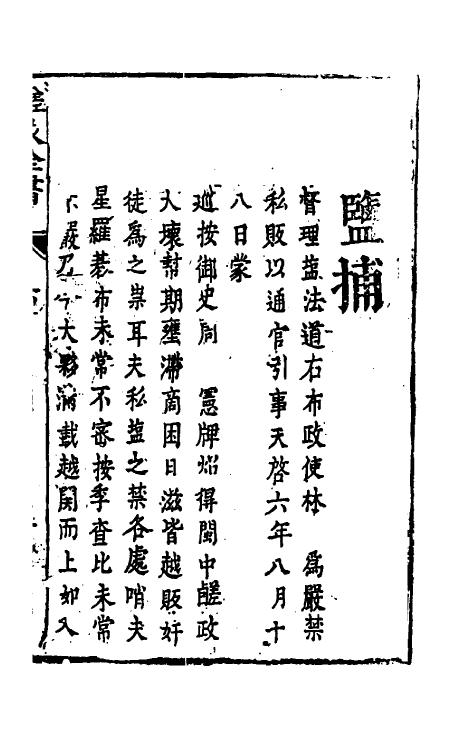 鹽捕
督理塩法道右布政使林　為嚴禁
私販以通官引事天啓六年八月十
八日蒙
巡按御史周　憲牌炤得閩中鹺政
大壞幇期壅滯商困日滋皆越販奸
徒為之祟耳夫私塩之禁各處哨夫
星羅碁布未常不審按季查比未常
不嚴乃今大夥滿載越関而上如入